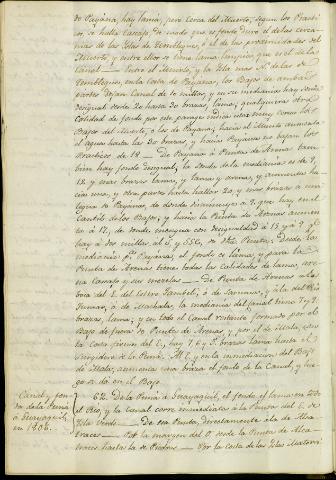 de Payana, hay lama, pero cerca del Muerto, segun los Practi-
cos, se halla cascajo, de modo que el fondo duro es de las cerca-
nias de las Yslas de Embleques, ó el de las proximidades del
Muerto, y entre ellos se tiene lama limpia que es el de la
Canal. Entre el Muerto, y la Ysla mas
Embleques, en la costa de Payana, los Bajos de ambas
partes dejan Canal de 10 millas, y en su mediania hay sonda
desigual desde 20 hasta 30 brazas, lama; qualquiera otra
calidad de fondo por este parage indica estar muy cerca los
Bajos del Muerto, ó los de Payana; hacia el Muerto aumenta
el agua hasta las 30 brazas, y hacia Payana no bajan los
Practicos de 18. De Payana á Punta de Arena tam-
bien hay fondo desigual; la sonda de la mediania es de 9,
12 y mas brazas lama, y lama y arena, y aumentan ha-
cia una, y otra parte hasta hallar 20 y mas brazas
de Payana, de donde disminuyen á 9 que hay en el
cantil de los Bajos; y hacia la Punta de Arenas aumen-
ta á 12, de donde mengua con desigualdad á 15 y á 9 q.e
hay á dos millas al S, y SSO, de dicha Punta: Desde la
mediania p.a Payana, el fondo es lama, y para la
Punta de Arenas tiene todas las calidades de lama, are-
na cascajo y sus mezclas. De Punta de Arenas á la
boca del
ó de Machala, la mediania del canal tiene 7 y 8
brazas, lama; y en todo el Canal restante formado por el
Bajo de fuera de Punta de Arenas, y por el de Mala, con
la costa firme del E, hay 7, 6 y 5 brazas lama hasta el
Surgidero de la Puná. Al E, y en la inmediacion del Bajo
de Mala, aumenta una braza el fondo de la Canal, y lue-
go se dá en el Bajo.
Canal, y fon-
do de la Puná
á Guayaquil,
en 1806.
62. De la Puná á Guayaquil, el fondo es lama en todo
el Rio, y la Canal corre inmediata á la Punta del E. de
Ysla Verde. De esta Punta, directamente á la de Alca-
traces. Por la margen del O. desde la Punta de Alca-
traces hasta la de Piedras. Por la Costa de las Yslas Matorri-